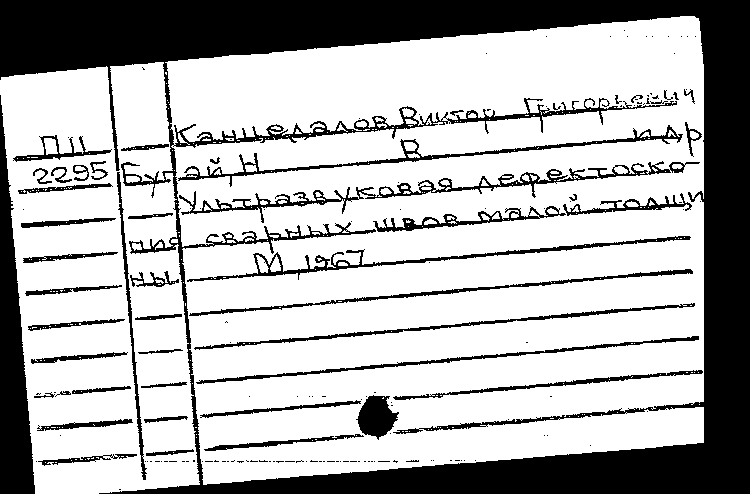 Канцедалов, Виктор Григорьевич
П11
2295 Бугай, Н В и др
Ультразвуковая дефектоско-
пия сварных швов малой толщи
ны. М, 1967